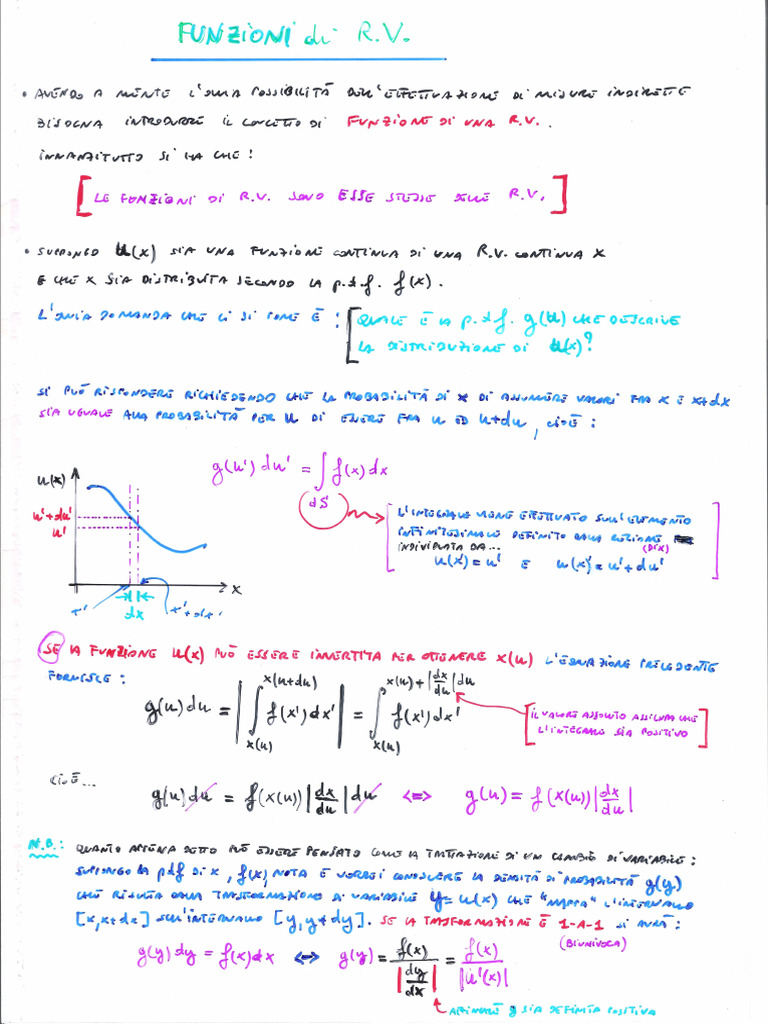 FUNZIONI di R.V.
• AVENDO A MENTE L'OVVIA POSSIBILITÀ DELL'EFFETTUAZIONE DI MISURE INDIRETTE
BISOGNA INTRODURRE IL CONCETTO DI FUNZIONE DI UNA R.V.
INNANZITUTTO SI HA CHE:
[LE FUNZIONI DI R.V. SONO ESSE STESSE DELLE R.V.]
• SUPPONGO u(x) SIA UNA FUNZIONE CONTINUA DI UNA R.V. CONTINUA X
E CHE X SIA DISTRIBUITA SECONDO LA p.d.f. f(x).
L'OVVIA DOMANDA CHE CI SI PONE È: [QUALE È LA p.d.f. g(u) CHE DESCRIVE
LA DISTRIBUZIONE DI u(x)?
SI PUÒ RISPONDERE RICHIEDENDO CHE LA PROBABILITÀ DI x DI ASSUMERE VALORI FRA x E x+dx
SIA UGUALE ALLA PROBABILITÀ PER u DI ESSERE FRA u ED u+du, CIOÈ:
g(u') du' = ∫ f(x) dx
dS
u(x)
u'+du'
u'
x
x'
dx
x'+dx'
[L'INTEGRALE VIENE EFFETTUATO SULL'ELEMENTO
INFINITESIMALE DEFINITO DALLA REGIONE
(DI X)
INDIVIDUATA DA...
u(x) = u' E u(x) = u'+du']
SE LA FUNZIONE u(x) PUÒ ESSERE INVERTITA PER OTTENERE x(u) L'EQUAZIONE PRECEDENTE
FORNISCE:
g(u) du = |∫_{x(u)}^{x(u+du)} f(x') dx'| = ∫_{x(u)}^{x(u)+|dx/du|du} f(x') dx'
[IL VALORE ASSOLUTO ASSICURA CHE
L'INTEGRALE SIA POSITIVO]
CIOÈ...
g(u) du = f(x(u)) |dx/du| du <=> g(u) = f(x(u)) |dx/du|
N.B.: QUANTO APPENA DETTO PUÒ ESSERE PENSATO COME LA TRATTAZIONE DI UN CAMBIO DI VARIABILE:
SUPPONGO LA pdf DI x, f(x), NOTA E VORREI CONOSCERE LA DENSITÀ DI PROBABILITÀ g(y)
CHE RISULTA DALLA TRASFORMAZIONE DI VARIABILE y = u(x) CHE "MAPPA" L'INTERVALLO
[x, x+dx] SULL'INTERVALLO [y, y+dy]. SE LA TRASFORMAZIONE È 1-A-1 SI AVRÀ:
(BIUNIVOCA)
g(y) dy = f(x) dx <=> g(y) = f(x)/|dy/dx| = f(x)/|u'(x)|
AFFINCHÈ g SIA DEFINITA POSITIVA